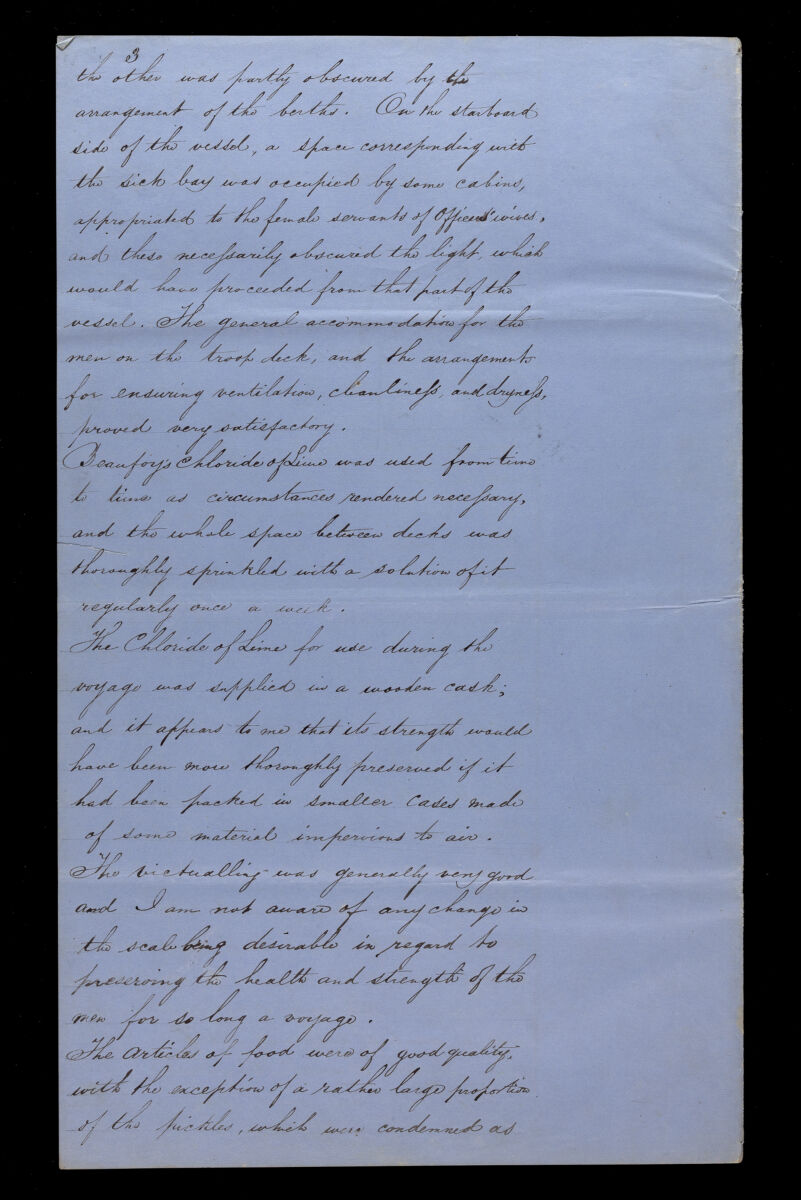 3
the other was partly obscured by the
arrangement of the berths. On the starboard
side of the vessel, a space corresponding with
the sick bay was occupied by some cabins,
appropriated to the female servants of Officers' wives,
and these necessarily obscured the light, which
would have proceeded from that part of the
vessel. The general accommodation for the
men on the troop deck, and the arrangements
for ensuring ventilation, cleanliness, and dryness,
proved very satisfactory.
Beaufoy's Chloride of Lime was used from time
to time as circumstances rendered necessary,
and the whole space between decks was
thoroughly sprinkled with a solution of it
regularly once a week.
The Chloride of Lime for use during the
voyage was supplied in a wooden cask;
and it appears to me that its strength would
have been more thoroughly preserved if it
had been packed in smaller cases made
of some material impervious to air.
The victualling was generally very good
and I am not aware of any change in
the scale being desirable in regard to
preserving the health and strength of the
men for so long a voyage.
The articles of food were of good quality,
with the exception of a rather large proportion
of the pickles, which were condemned as